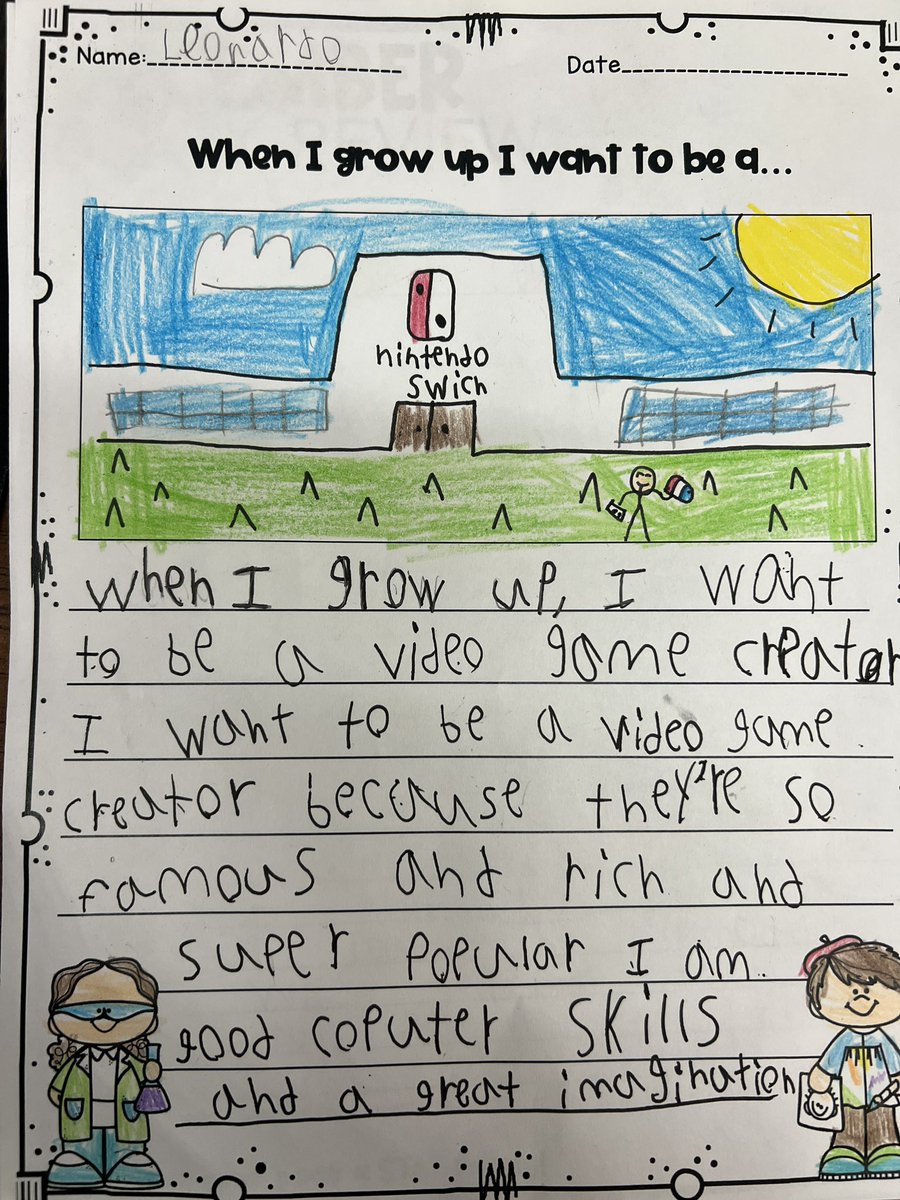 Name: Leonardo Date
When I grow up I want to be a...
nintendo
swich
when I grow up, I want
to be a video game creator
I want to be a video game
creator because they're so
famous and rich and
super popular I am
good coputer skills
and a great imagination